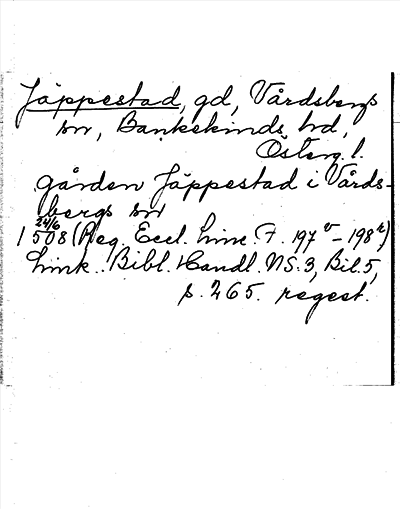 Jäppestad, gd, Vårdsbergs
sn, Bankekinds hd,
Österg. l.
gården Jäppestad i Vårds-
bergs sn
24/6
1508 (Reg. Eccl. Linc. F. 197v-198r)
Link. Bibl. Handl. NS. 3, Bil. 5,
s. 265. regest.